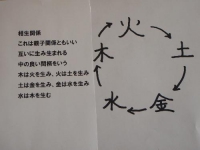 相生関係
これは親子関係ともいい
互いに生み生まれる
中の良い間断をいう
木は火を生み、火は土を生み
土は金を生み、金は水を生み
水は木を生む
火
土
金
水
木